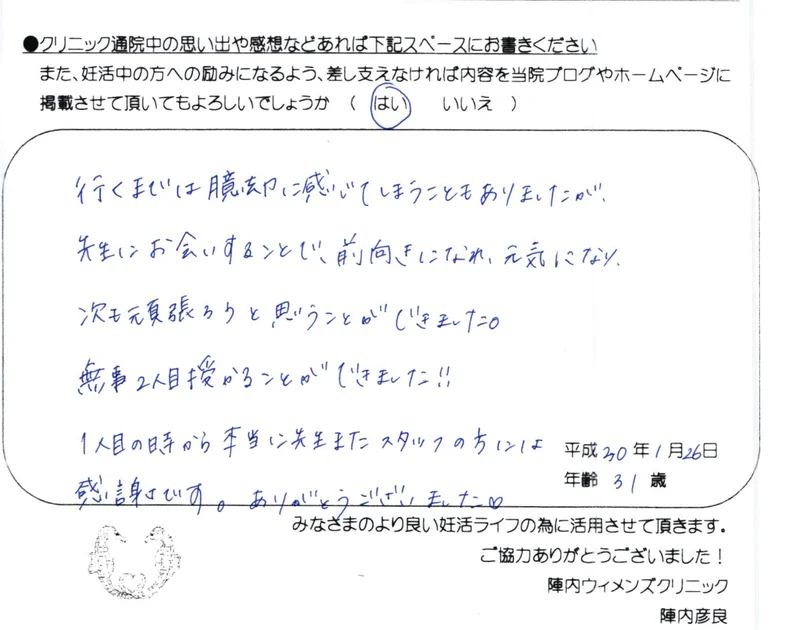 ●クリニック通院中の思い出や感想などあれば下記スペースにお書きください
また、妊活中の方への励みになるよう、差し支えなければ内容を当院ブログやホームページに
掲載させて頂いてもよろしいでしょうか （ はい いいえ ）
行くまでは臆劫に感じてしまうこともありましたが、
先生にお会いすることで、前向きになれ、元気になり、
次も頑張ろうと思うことができました。
無事2人目授かることができました!!
1人目の時から本当に先生またスタッフの方には
感謝です。ありがとうございました♡
平成30年1月26日
年齢 31 歳
みなさまのより良い妊活ライフの為に活用させて頂きます。
ご協力ありがとうございました！
陣内ウィメンズクリニック
陣内彦良